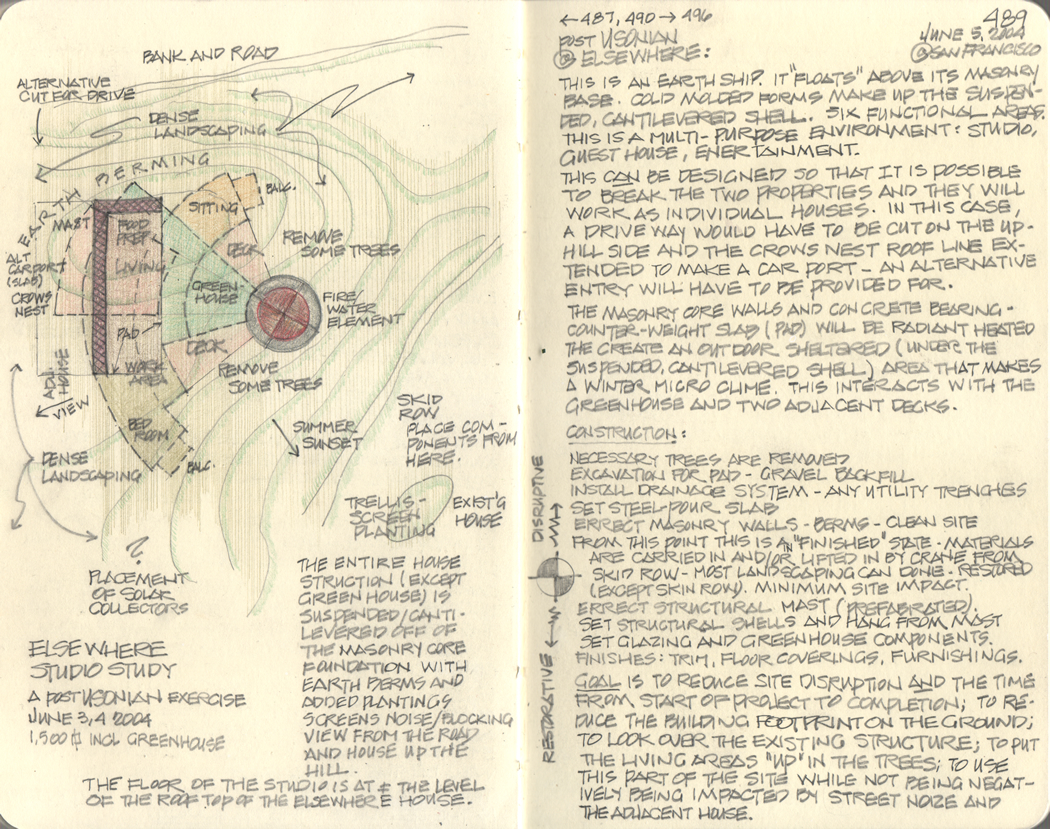 BANK AND ROAD
ALTERNATIVE
CUT FOR DRIVE
DENSE
LANDSCAPING
EARTH BERMING
MAST
FOOD
PREP.
LIVING
SITTING
BALC.
DECK
REMOVE
SOME TREES
ALT
CARPORT
(SLAB)
CROWS
NEST
GREEN-
HOUSE
FIRE/
WATER
ELEMENT
PAD
DECK
WORK
AREA
REMOVE
SOME TREES
ADJ.
HOUSE
VIEW
BED
ROOM
BALC.
SUMMER
SUNSET
SKID
ROW
PLACE COM-
PONENTS FROM
HERE.
DENSE
LANDSCAPING
TRELLIS-
SCREEN
PLANTING
EXIST'G
HOUSE
?
PLACEMENT
OF SOLAR
COLLECTORS
THE ENTIRE HOUSE
STRUCTION (EXCEPT
GREEN HOUSE) IS
SUSPENDED/CANTI-
LEVERED OFF OF
THE MASONRY CORE
FOUNDATION WITH
EARTH BERMS AND
ADDED PLANTINGS
SCREENS NOISE/BLOCKING
VIEW FROM THE ROAD
AND HOUSE UP THE
HILL.
ELSEWHERE
STUDIO STUDY
A POST USONIAN EXERCISE
JUNE 3,4 2004
1,500 INCL GREENHOUSE
THE FLOOR OF THE STUDIO IS AT ± THE LEVEL
OF THE ROOF TOP OF THE ELSEWHERE HOUSE.
←487, 490 → 496
489
POST USONIAN
JUNE 5, 2004
@ ELSEWHERE:
@SAN FRANCISCO
THIS IS AN EARTH SHIP. IT "FLOATS" ABOVE ITS MASONRY
BASE. COLD MOLDED FORMS MAKE UP THE SUSPEN-
DED, CANTILEVERED SHELL. SIX FUNCTIONAL AREAS.
THIS IS A MULTI-PURPOSE ENVIRONMENT: STUDIO,
GUEST HOUSE, ENERTAINMENT.
THIS CAN BE DESIGNED SO THAT IT IS POSSIBLE
TO BREAK THE TWO PROPERTIES AND THEY WILL
WORK AS INDIVIDUAL HOUSES. IN THIS CASE,
A DRIVE WAY WOULD HAVE TO BE CUT ON THE UP-
HILL SIDE AND THE CROWS NEST ROOF LINE EX-
TENDED TO MAKE A CAR PORT – AN ALTERNATIVE
ENTRY WILL HAVE TO BE PROVIDED FOR.
THE MASONRY CORE WALLS AND CONCRETE BEARING-
COUNTER-WEIGHT SLAB (PAD) WILL BE RADIANT HEATED
THE CREATE AN OUTDOOR SHELTERED (UNDER THE
SUSPENDED, CANTILEVERED SHELL) AREA THAT MAKES
A WINTER MICRO CLIME. THIS INTERACTS WITH THE
GREENHOUSE AND TWO ADJACENT DECKS.
CONSTRUCTION:
NECESSARY TREES ARE REMOVED
EXCAVATION FOR PAD - GRAVEL BACKFILL
INSTALL DRAINAGE SYSTEM - ANY UTILITY TRENCHES
SET STEEL-POUR SLAB
ERRECT MASONRY WALLS - BERMS - CLEAN SITE
FROM THIS POINT THIS IS A IN "FINISHED" STATE - MATERIALS
ARE CARRIED IN AND/OR LIFTED IN BY CRANE FROM
SKID ROW - MOST LANDSCAPING CAN DONE - RESTORED
(EXCEPT SKIN ROW). MINIMUM SITE IMPACT.
ERRECT STRUCTURAL MAST (PREFABRATED).
SET STRUCTURAL SHELLS AND HANG FROM MAST
SET GLAZING AND GREENHOUSE COMPONENTS.
FINISHES: TRIM, FLOOR COVERINGS, FURNISHINGS.
DISRUPTIVE
RESTORATIVE
GOAL IS TO REDUCE SITE DISRUPTION AND THE TIME
FROM START OF PROJECT TO COMPLETION; TO RE-
DUCE THE BUILDING FOOTPRINT ON THE GROUND;
TO LOOK OVER THE EXISTING STRUCTURE; TO PUT
THE LIVING AREAS "UP" IN THE TREES; TO USE
THIS PART OF THE SITE WHILE NOT BEING NEGAT-
IVELY BEING IMPACTED BY STREET NOIZE AND
THE ADJACENT HOUSE.